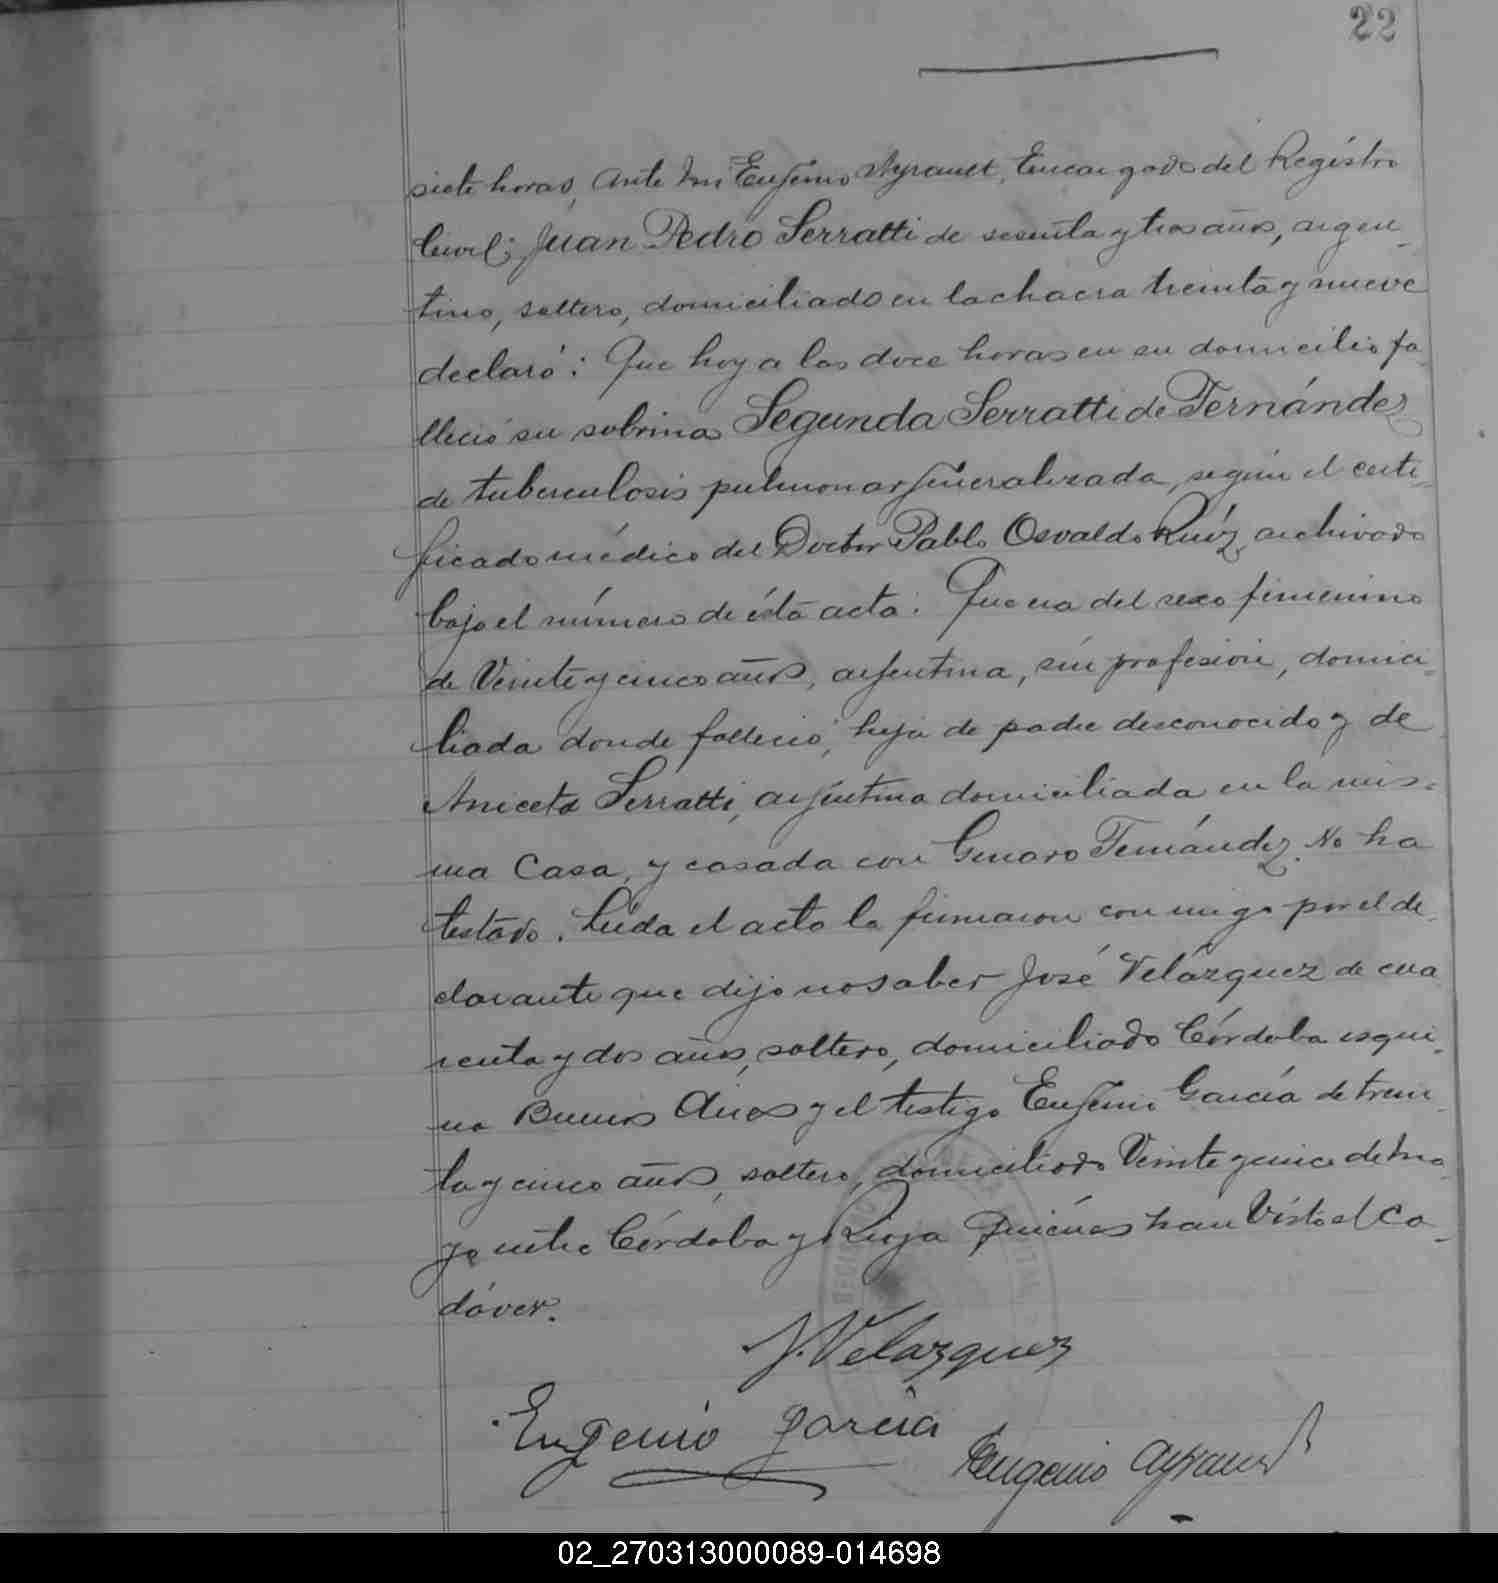 22
siete horas, ante mi Eugenio Ayrault, Encargado del Registro
Civil; Juan Pedro Serratti de sesenta y tres años, argen-
tino, soltero, domiciliado en la chacra treinta y nueve
declaró: Que hoy a las doce horas en su domicilio fa-
lleció su sobrina Segunda Serratti de Fernández
de tuberculosis pulmonar generalizada, según el certi-
ficado médico del Doctor Pablo Osvaldo Ruíz, archivado
bajo el número de ésta acta: Que era del sexo femenino
de Veinte y cinco años, argentina, sin profesión, domici-
liada donde falleció, hija de padre desconocido y de
Aniceta Serratti, argentina domiciliada en la mis-
ma Casa, y casada con Genaro Fernández. No ha
testado. Leída el acta la firmaron con migo por el de-
clarante que dijo no saber José Velázquez de cua
renta y dos años, soltero, domiciliado Córdoba esqui-
na Buenos Aires y el testigo Eugenio García de trein-
ta y cinco años, soltero, domiciliado Veinte y cinco de Ma-
yo entre Córdoba y Rioja Quiénes han Visto el Ca-
dáver.
J. Velazquez
Eugenio García
Eugenio Ayrault
02_270313000089-014698